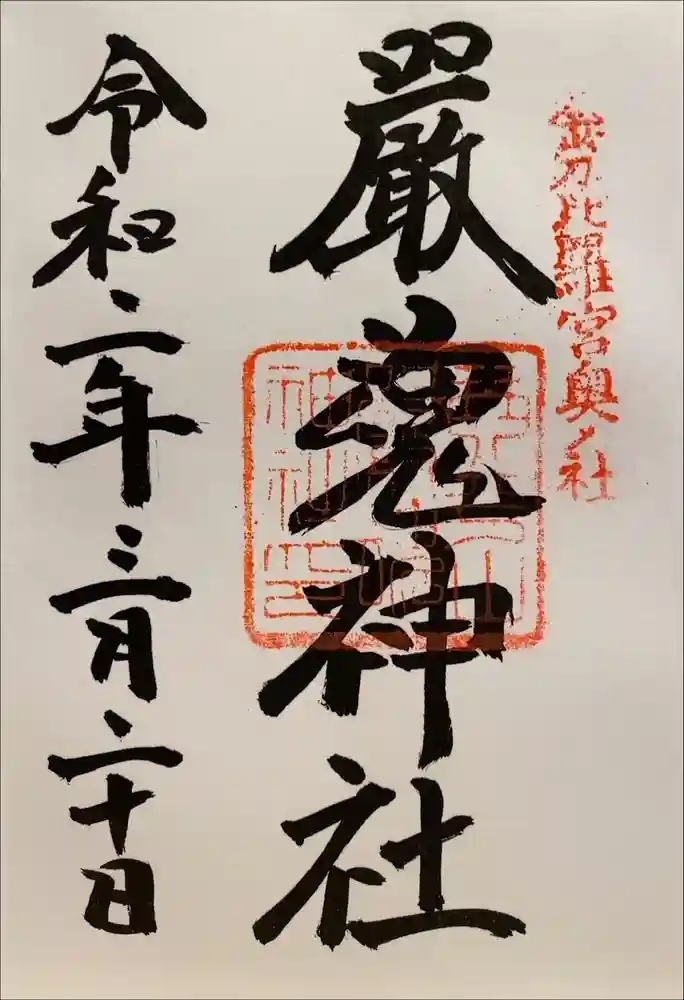 金刀比羅宮奥ノ社
嚴魂神社
令和二年三月二十日